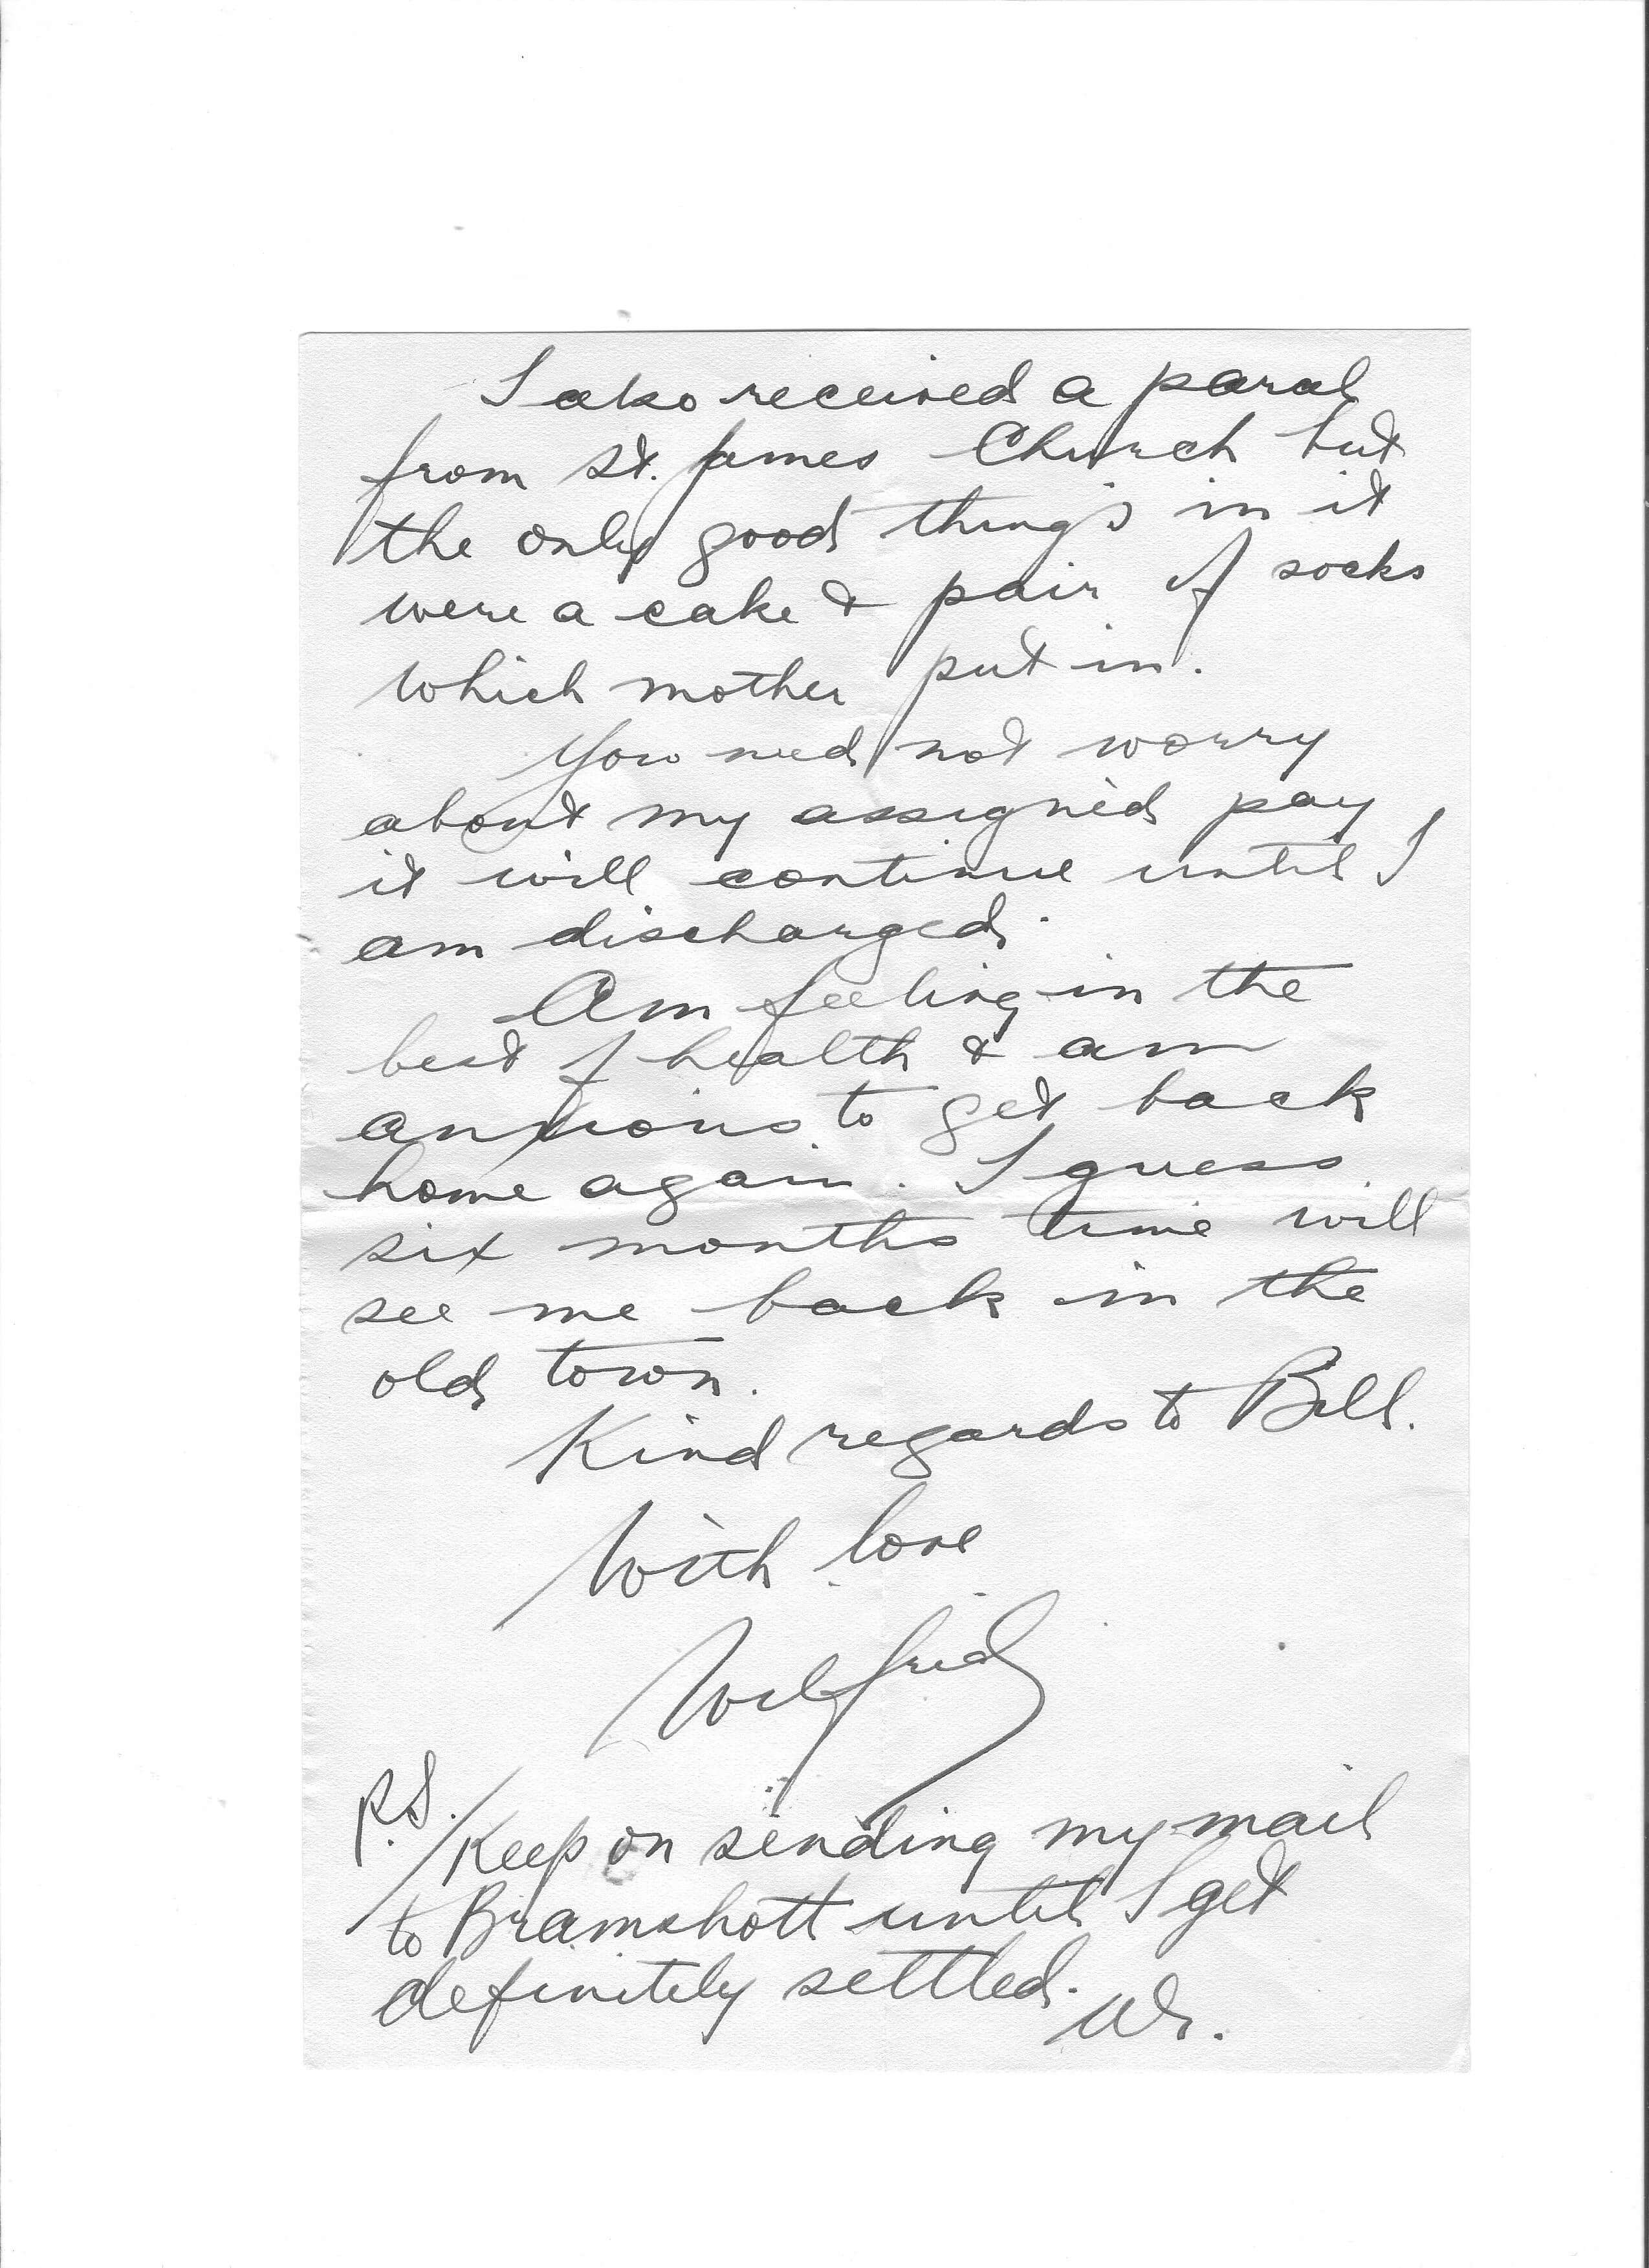 I also received a parcel
from St. James Church but
the only good things in it
were a cake & pair of socks
which mother put in.
You need not worry
about my assigned pay
it will continue until I
am discharged.
Am feeling in the
best of health & am
anxious to get back
home again. I guess
six months time will
see me back in the
old town.
Kind regards to Bill.
With love
Wilfrid
P.S. / Keep on sending my mail
to Bramshott until I get
definitely settled.